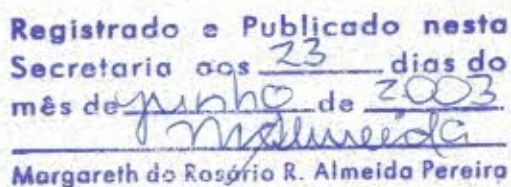 Registrado e Publicado nesta
Secretaria aos 23 dias do
mês de junho de 2003
MAlmeida
Margareth do Rosário R. Almeida Pereira